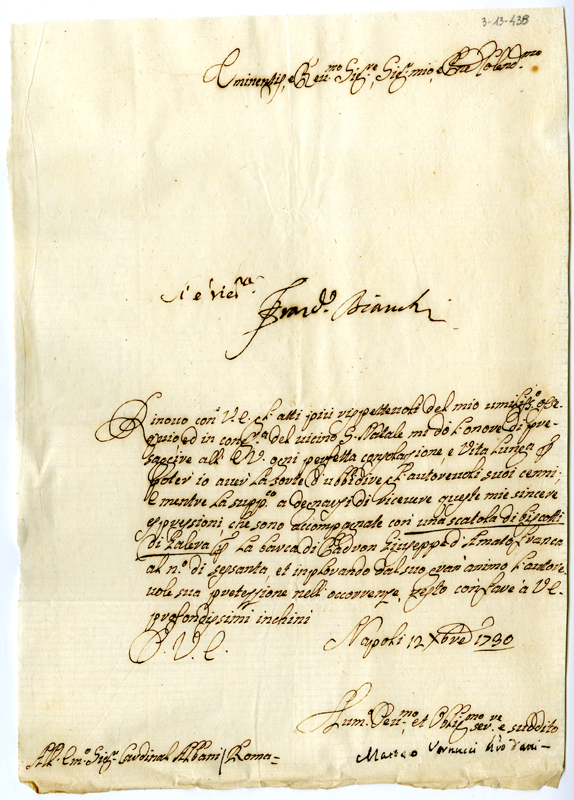 3-13-438
Eminentiss.e e Reu.mo Sig.re, Sig.r mio, e Pne Colend.mo
Si è
Bianchi
Rinouo con V.E. gl'atti più rispetteuoli del mio umiliss.o osse-
quio ed in con del uicino S. Natale mi dò l'onore di pre-
all'E.V. ogni perfetta consolazione, e Vita lunga
poter io auer la sorte d'ubbidire gl'autoreuoli suoi cenni;
e mentre la supp.co a degnarsi di riceuere queste mie sincere
espressioni, che sono accompagnate con una scatola di biscotti
di la barca di Padron Giuseppe d'Amato franca
al n.o di sessanta, et implorando dal suo gran animo l'autore-
uole sua protezione nell'occorrenze, resto con fare à V.E.
profondissimi inchini
D. V. E. Napoli 12 Xbre 1730
Hum.o Deu.mo, et Obblig.mo ser.ve e suddito
Matteo
All'Em.o Sig.r Cardinal Albani / Roma-